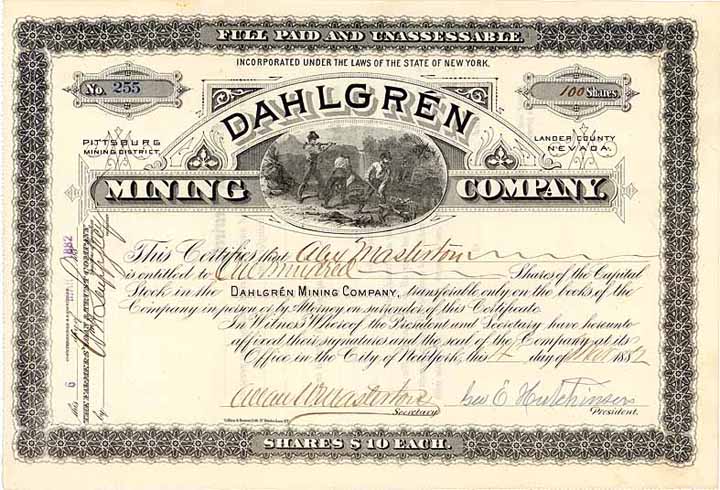 FULL PAID AND UNASSESSABLE.
INCORPORATED UNDER THE LAWS OF THE STATE OF NEW YORK.
No. 255
100 Shares.
DAHLGRÉN
PITTSBURG
MINING DISTRICT.
LANDER COUNTY
NEVADA.
MINING COMPANY.
This Certifies that Alex Masterton
is entitled to One Hundred Shares of the Capital
Stock in the DAHLGRÉN MINING COMPANY, transferable only on the books of the
Company in person or by Attorney on surrender of this Certificate.
In Witness Whereof the President and Secretary have hereunto
affixed their signatures and the seal of the Company at its
Office in the City of New York, this 4 day of Mar 1882
Allan W. Masterton
Secretary.
Geo E Hutchinson
President.
SHARES $10 EACH.
this 6
1882
by